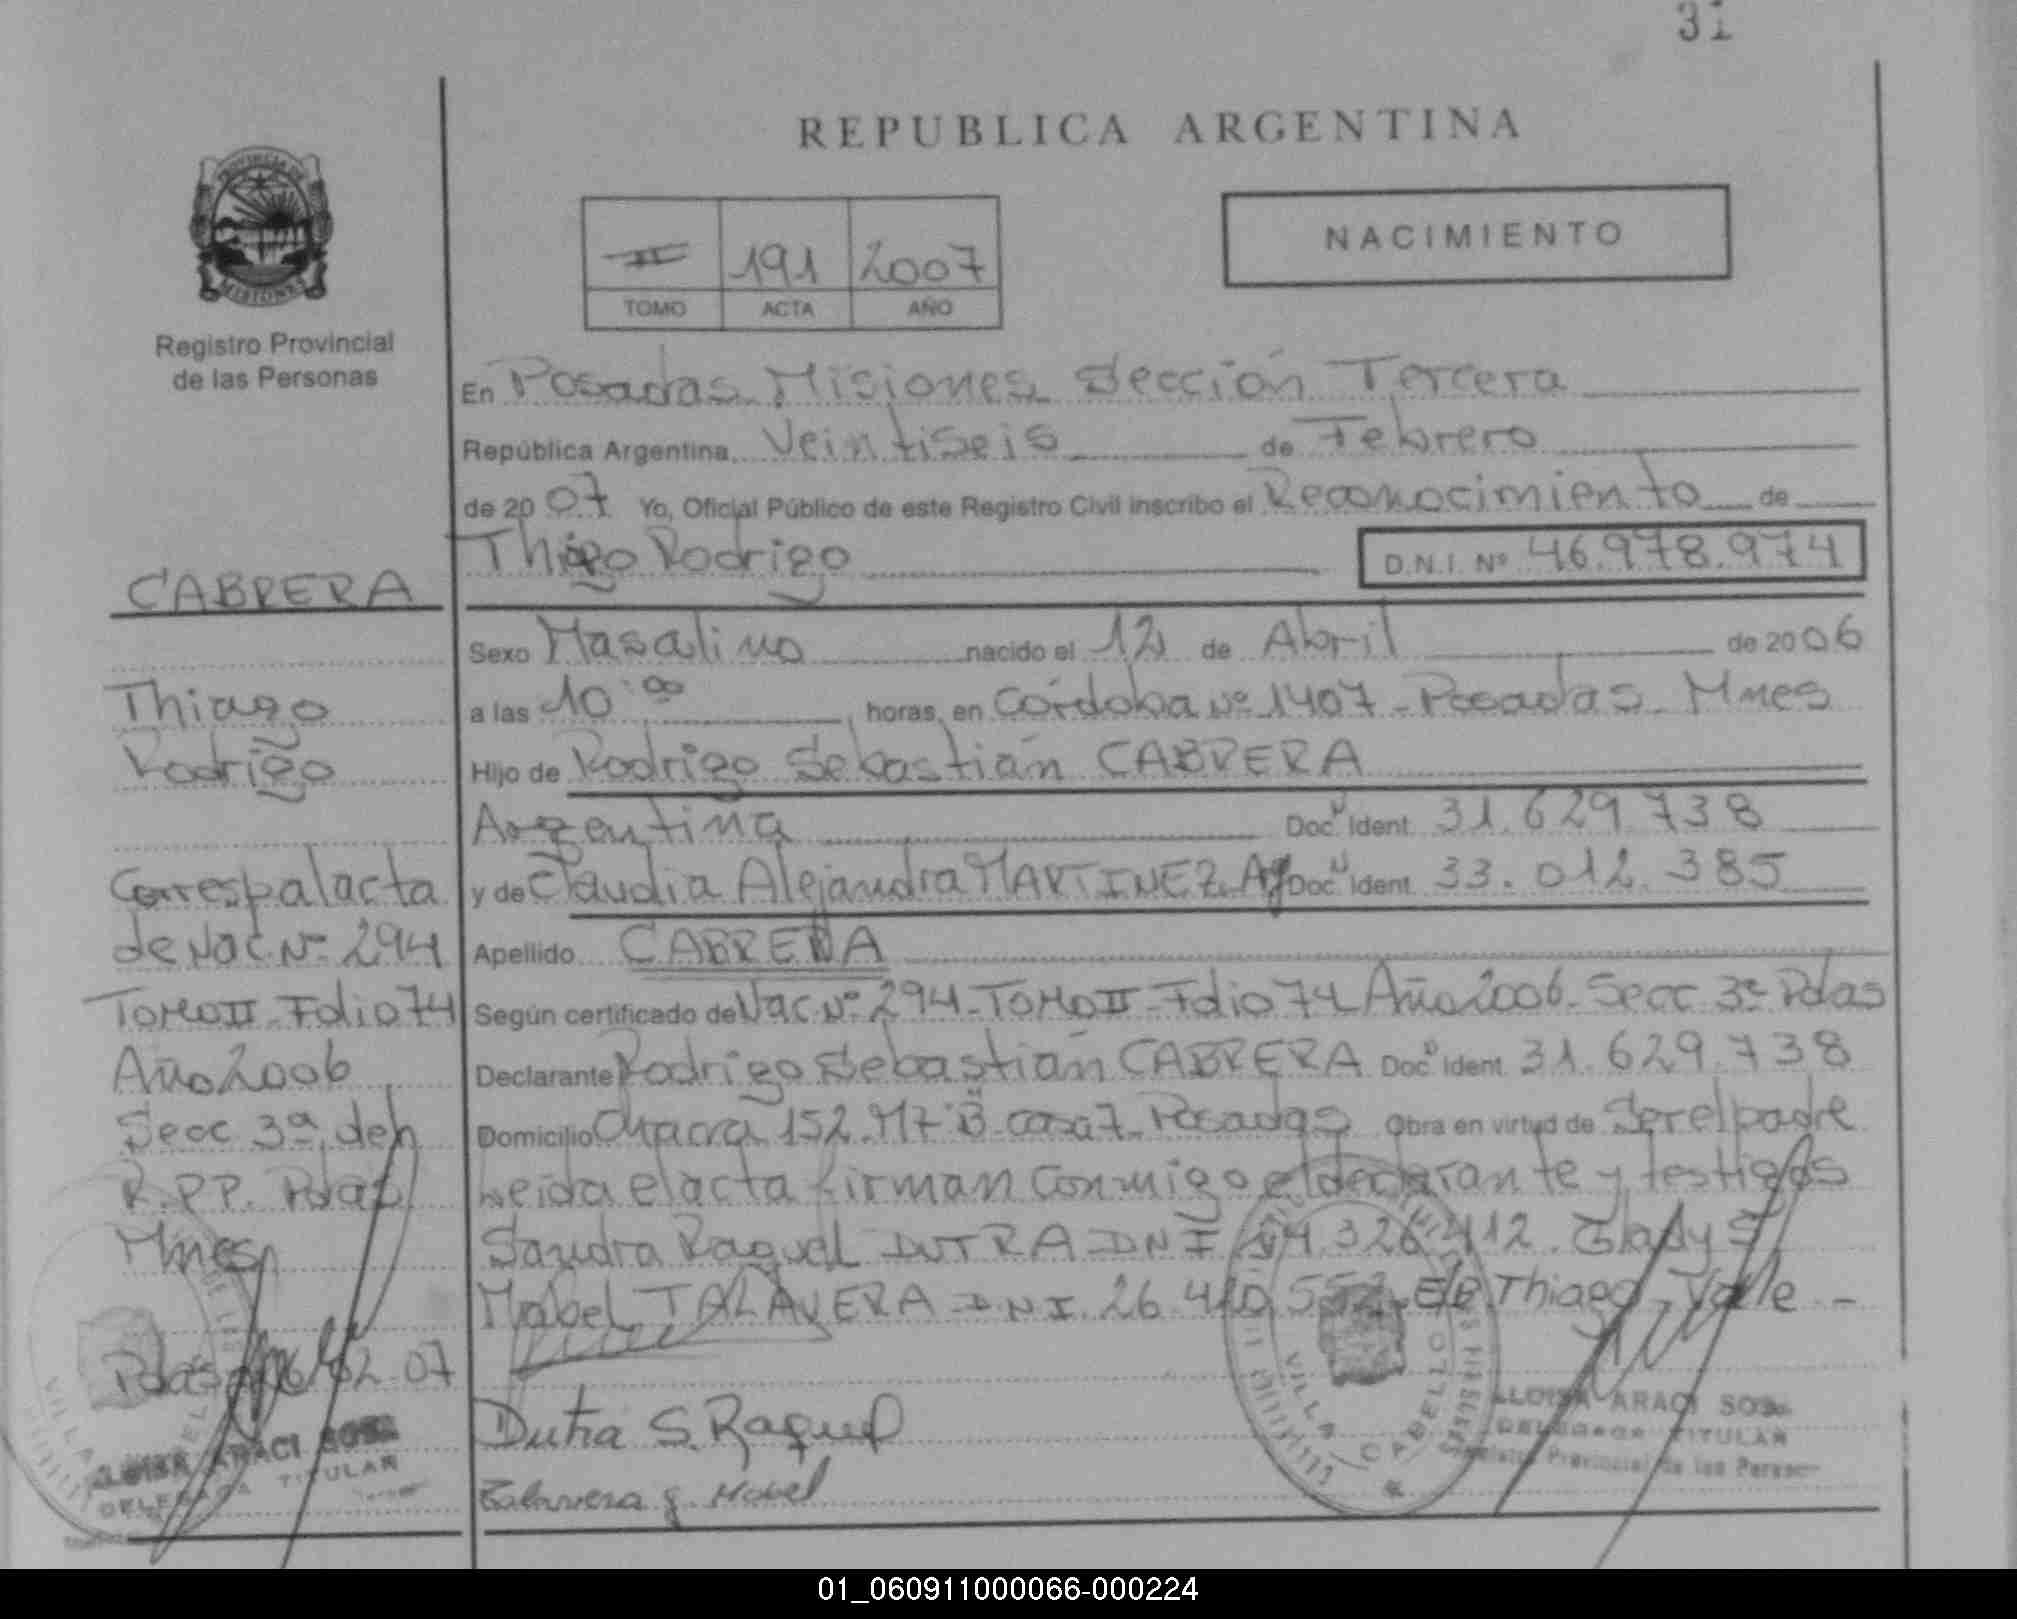 31
REPUBLICA ARGENTINA
PROVINCIA DE
MISIONES
Registro Provincial
de las Personas
II 191 2007
TOMO ACTA AÑO
NACIMIENTO
En Posadas Misiones Sección Tercera
República Argentina, Veintiseis de Febrero
de 2007 Yo, Oficial Público de este Registro Civil inscribo el Reconocimiento de
Thiago Rodrigo D.N.I. Nº 46.978.974
Sexo Masculino nacido el 12 de Abril de 2006
a las 10:00 horas, en Córdoba Nº 1407 - Posadas - Mnes
Hijo de Rodrigo Sebastián CABRERA
Argentina Doc. Ident. 31.629.738
y de Claudia Alejandra MARTINEZ Ag Doc. Ident. 33.012.385
Apellido CABRERA
Según certificado de Nac Nº 294 - TOMO II - Folio 74 Año 2006 - Secc 3ª Pdas
Declarante Rodrigo Sebastián CABRERA Doc. Ident. 31.629.738
Domicilio Chacra 152 Mz B casa 7 - Posadas Obra en virtud de Ser el padre
Leida el acta firman conmigo el declarante y testigos
Sandra Raquel DUTRA DNI 24.326.412. Gladys
Mabel TALAVERA DNI 26.420.552 - E/l. Thiago - Vale -
Dutra S. Raquel
Talavera g. Mabel
CABRERA
Thiago
Rodrigo
Corresp al acta
de Nac. Nº 294
TOMO II - Folio 74
Año 2006
Secc 3ª del
R.P.P. Pdas
Mnes
Pdas 26/02-07
ARACI SOSA
DELEGADA TITULAR
VILLA CABELLO
ARACI SOSA
DELEGADA TITULAR
Registro Provincial de las Personas
01_060911000066-000224